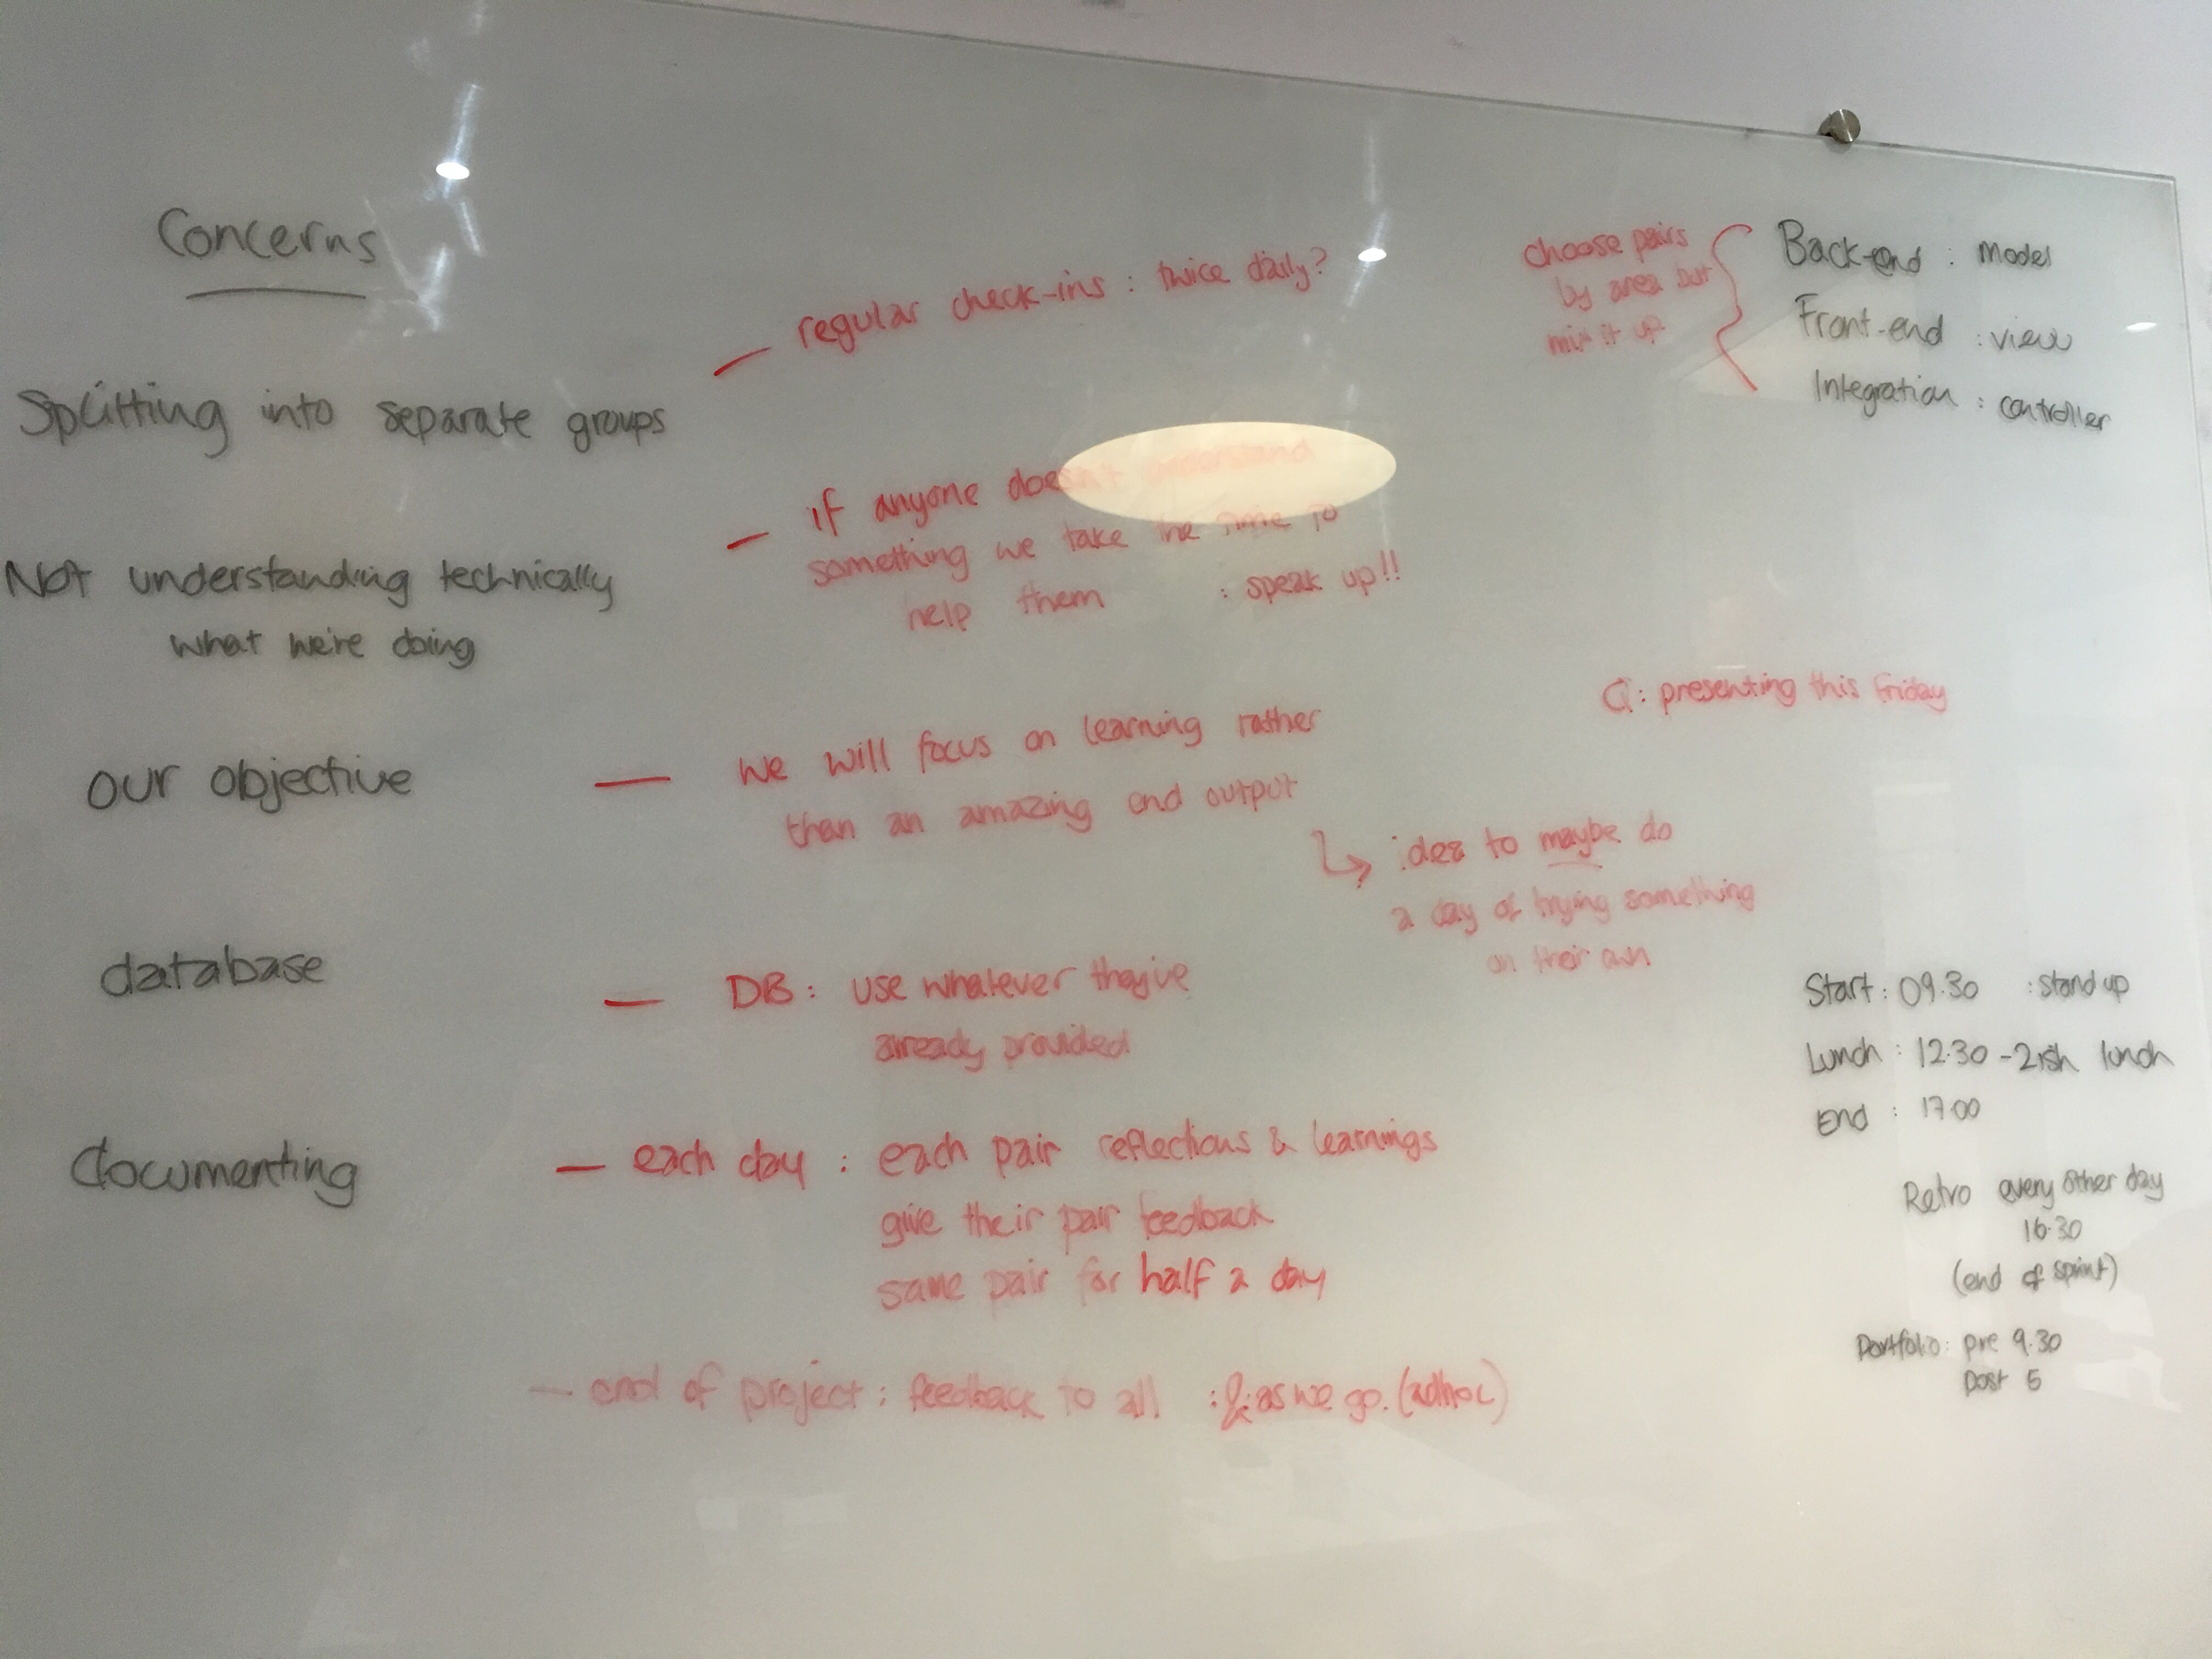 Concerns
Splitting into separate groups
— regular check-ins : twice daily?
Not understanding technically
what we're doing
— if anyone doesn't understand
something we take the time to
help them : speak up!!
our objective
— we will focus on learning rather
than an amazing end output
↳ idea to maybe do
a day of trying something
on their own
database
— DB : use whatever they've
already provided
documenting
— each day : each pair reflections & learnings
give their pair feedback
same pair for half a day
— end of project : feedback to all : & as we go. (adhoc)
choose pairs
by area but
mix it up
Back-end : model
Front-end : view
Integration : controller
Q : presenting this Friday
Start : 09.30 : stand up
Lunch : 12.30 - 2ish lunch
End : 17.00
Retro every other day
16.30
(end of sprint)
Portfolio : pre 9.30
post 5